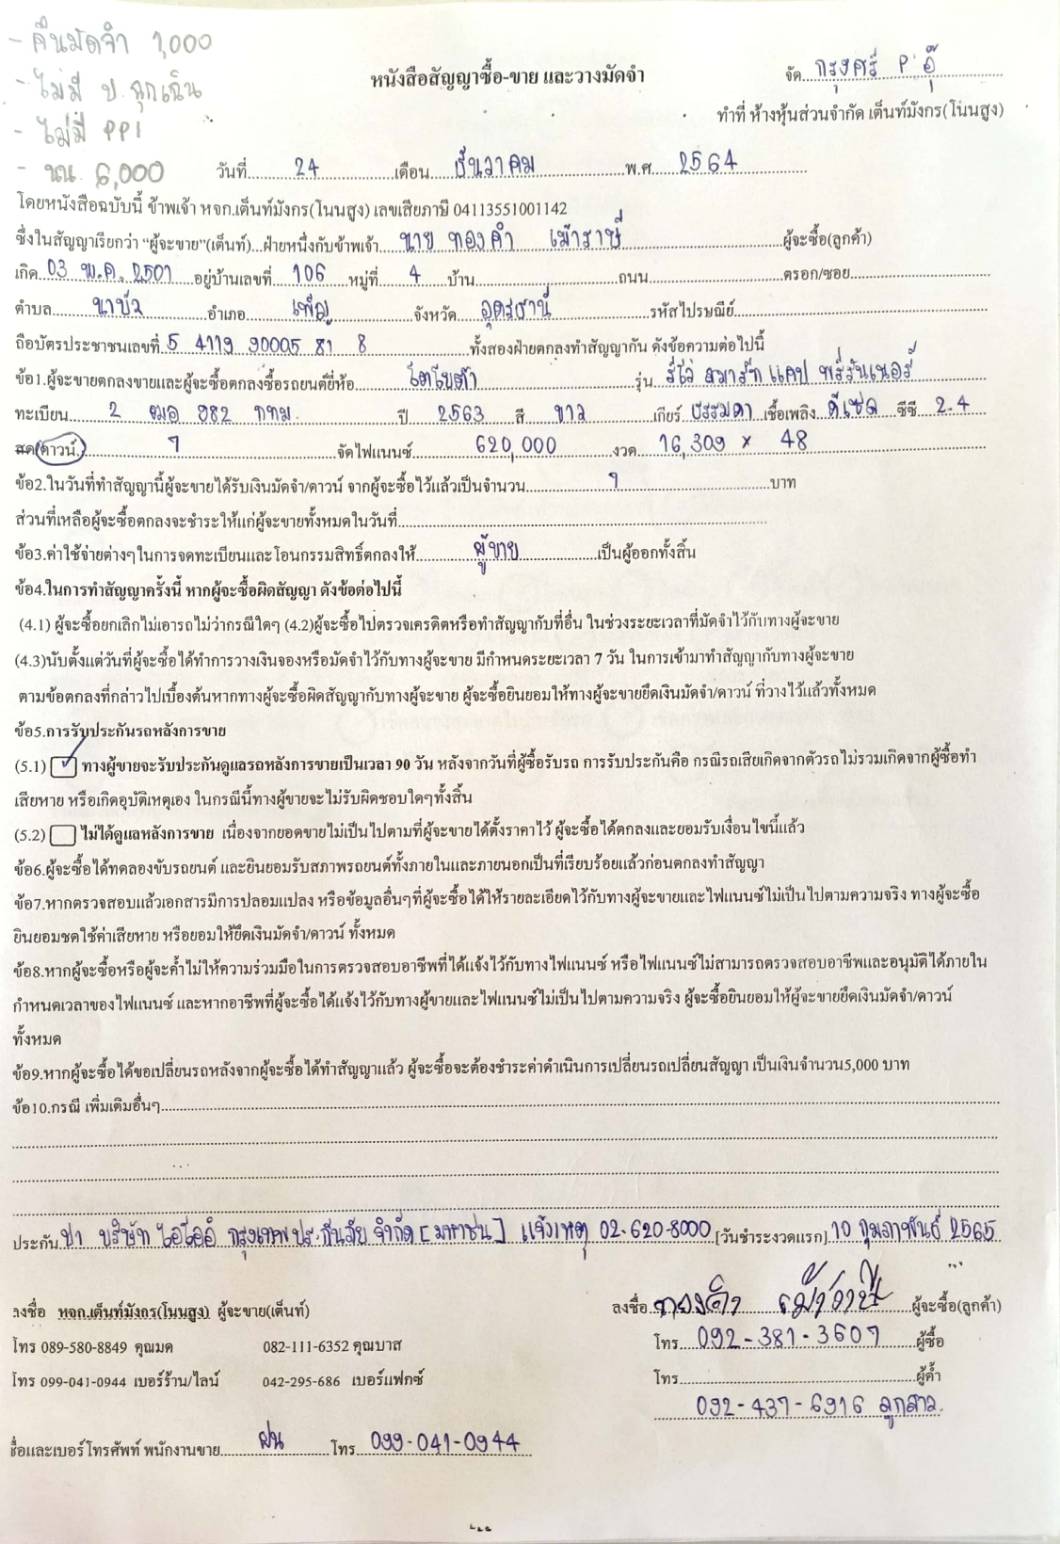 - คืนมัดจำ 1,000
- ไม่มี ป ฉุกเฉิน
- ไม่มี PPI
- นณ. 6,000
หนังสือสัญญาซื้อ-ขาย และวางมัดจำ
จัด กรุงศรี P'อุ๊
ทำที่ ห้างหุ้นส่วนจำกัด เต็นท์มังกร(โนนสูง)
วันที่ 24 เดือน ธันวาคม พ.ศ. 2564
โดยหนังสือฉบับนี้ ข้าพเจ้า หจก.เต็นท์มังกร(โนนสูง) เลขเสียภาษี 04113551001142
ซึ่งในสัญญาเรียกว่า "ผู้จะขาย"(เต็นท์)...ฝ่ายหนึ่งกับข้าพเจ้า นาย ทองคำ เม้าราษี ผู้จะซื้อ(ลูกค้า)
เกิด 03 พ.ค. 2501 อยู่บ้านเลขที่ 106 หมู่ที่ 4 บ้าน ถนน ตรอก/ซอย
ตำบล นาบัว อำเภอ เพ็ญ จังหวัด อุดรธานี รหัสไปรษณีย์
ถือบัตรประชาชนเลขที่ 5 4119 90005 81 8 ทั้งสองฝ่ายตกลงทำสัญญากัน ดังข้อความต่อไปนี้
ข้อ1.ผู้จะขายตกลงขายและผู้จะซื้อตกลงซื้อรถยนต์ยี่ห้อ โตโยต้า รุ่น รีโว่ สมาร์ท แคป พรีรันเนอร์
ทะเบียน 2 ฒอ 982 กทม ปี 2563 สี ขาว เกียร์ ธรรมดา เชื้อเพลิง ดีเซล ซีซี 2.4
สด(ดาวน์.) 7 จัดไฟแนนซ์ 620,000 งวด 16,309 × 48
ข้อ2.ในวันที่ทำสัญญานี้ผู้จะขายได้รับเงินมัดจำ/ดาวน์ จากผู้จะซื้อไว้แล้วเป็นจำนวน 7 บาท
ส่วนที่เหลือผู้จะซื้อตกลงจะชำระให้แก่ผู้จะขายทั้งหมดในวันที่
ข้อ3.ค่าใช้จ่ายต่างๆในการจดทะเบียนและโอนกรรมสิทธิ์ตกลงให้ ผู้ขาย เป็นผู้ออกทั้งสิ้น
ข้อ4.ในการทำสัญญาครั้งนี้ หากผู้จะซื้อผิดสัญญา ดังข้อต่อไปนี้
(4.1) ผู้จะซื้อยกเลิกไม่เอารถไม่ว่ากรณีใดๆ (4.2)ผู้จะซื้อไปตรวจเครดิตหรือทำสัญญากับที่อื่น ในช่วงระยะเวลาที่มัดจำไว้กับทางผู้จะขาย
(4.3)นับตั้งแต่วันที่ผู้จะซื้อได้ทำการวางเงินจองหรือมัดจำไว้กับทางผู้จะขาย มีกำหนดระยะเวลา 7 วัน ในการเข้ามาทำสัญญากับทางผู้จะขาย
ตามข้อตกลงที่กล่าวไปเบื้องต้นหากทางผู้จะซื้อผิดสัญญากับทางผู้จะขาย ผู้จะซื้อยินยอมให้ทางผู้จะขายยึดเงินมัดจำ/ดาวน์ ที่วางไว้แล้วทั้งหมด
ข้อ5.การรับประกันรถหลังการขาย
(5.1) ✓ ทางผู้ขายจะรับประกันดูแลรถหลังการขายเป็นเวลา 90 วัน หลังจากวันที่ผู้ซื้อรับรถ การรับประกันคือ กรณีรถเสียเกิดจากตัวรถไม่รวมเกิดจากผู้ซื้อทำ
เสียหาย หรือเกิดอุบัติเหตุเอง ในกรณีนี้ทางผู้ขายจะไม่รับผิดชอบใดๆทั้งสิ้น
(5.2) ไม่ได้ดูแลหลังการขาย เนื่องจากยอดขายไม่เป็นไปตามที่ผู้จะขายได้ตั้งราคาไว้ ผู้จะซื้อได้ตกลงและยอมรับเงื่อนไขนี้แล้ว
ข้อ6.ผู้จะซื้อได้ทดลองขับรถยนต์ และยินยอมรับสภาพรถยนต์ทั้งภายในและภายนอกเป็นที่เรียบร้อยแล้วก่อนตกลงทำสัญญา
ข้อ7.หากตรวจสอบแล้วเอกสารมีการปลอมแปลง หรือข้อมูลอื่นๆที่ผู้จะซื้อได้ให้รายละเอียดไว้กับทางผู้จะขายและไฟแนนซ์ไม่เป็นไปตามความจริง ทางผู้จะซื้อ
ยินยอมชดใช้ค่าเสียหาย หรือยอมให้ยึดเงินมัดจำ/ดาวน์ ทั้งหมด
ข้อ8.หากผู้จะซื้อหรือผู้จะค้ำไม่ให้ความร่วมมือในการตรวจสอบอาชีพที่ได้แจ้งไว้กับทางไฟแนนซ์ หรือไฟแนนซ์ไม่สามารถตรวจสอบอาชีพและอนุมัติได้ภายใน
กำหนดเวลาของไฟแนนซ์ และหากอาชีพที่ผู้จะซื้อได้แจ้งไว้กับทางผู้ขายและไฟแนนซ์ไม่เป็นไปตามความจริง ผู้จะซื้อยินยอมให้ผู้จะขายยึดเงินมัดจำ/ดาวน์
ทั้งหมด
ข้อ9.หากผู้จะซื้อได้ขอเปลี่ยนรถหลังจากผู้จะซื้อได้ทำสัญญาแล้ว ผู้จะซื้อจะต้องชำระค่าดำเนินการเปลี่ยนรถเปลี่ยนสัญญา เป็นเงินจำนวน5,000 บาท
ข้อ10.กรณี เพิ่มเติมอื่นๆ
ประกัน ป1 บริษัท ไอโออิ กรุงเทพ ประกันภัย จำกัด [มหาชน] แจ้งเหตุ 02-620-8000 [วันชำระงวดแรก] 10 กุมภาพันธ์ 2565
ลงชื่อ หจก.เต็นท์มังกร(โนนสูง) ผู้จะขาย(เต็นท์) ลงชื่อ ทองคำ เม้าราษี ผู้จะซื้อ(ลูกค้า)
โทร 089-580-8849 คุณมด 082-111-6352 คุณบาส โทร 092-381-3607 ผู้ซื้อ
โทร 099-041-0944 เบอร์ร้าน/ไลน์ 042-295-686 เบอร์แฟกซ์ โทร ผู้ค้ำ
092-437-6916 ลูกสาว
ชื่อและเบอร์โทรศัพท์ พนักงานขาย ฝน โทร 099-041-0944